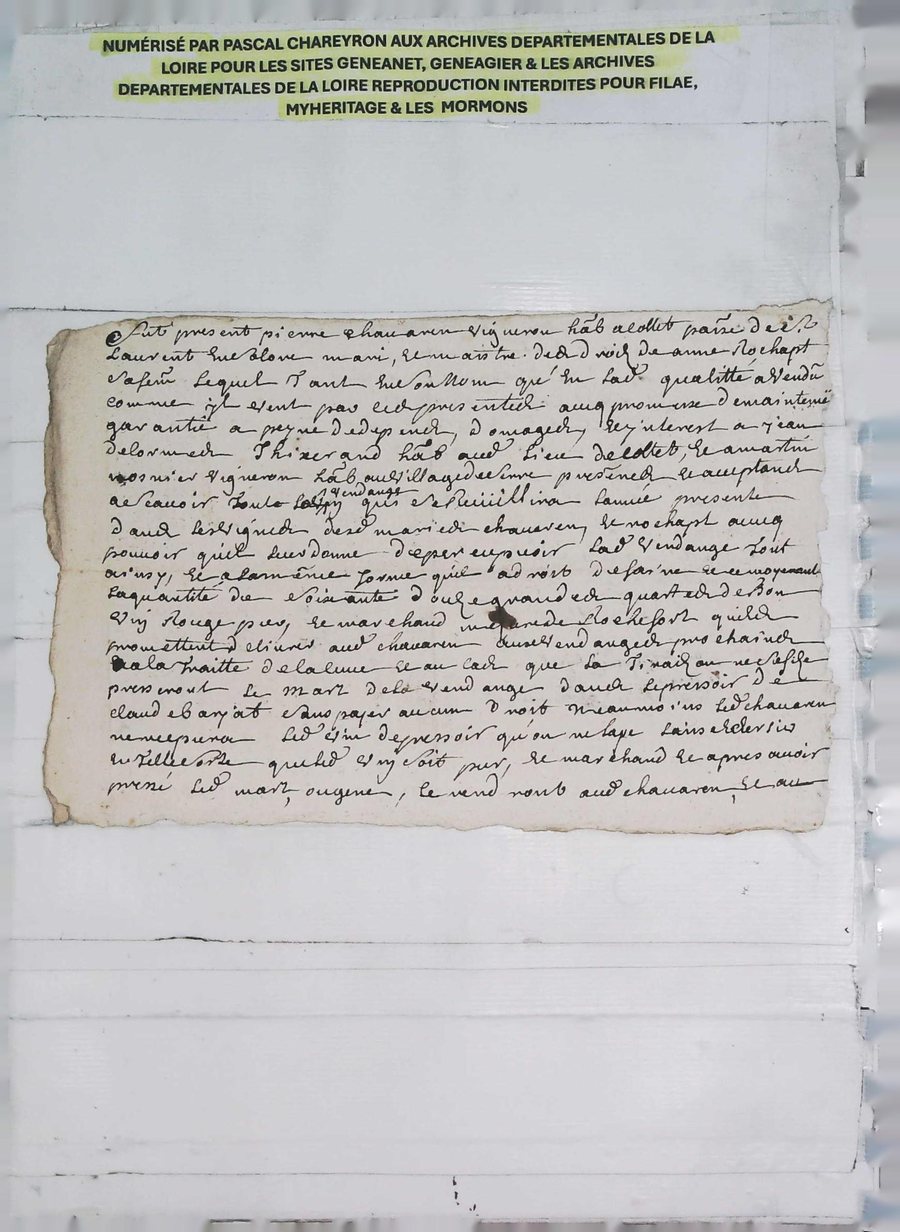 NUMÉRISÉ PAR PASCAL CHAREYRON AUX ARCHIVES DEPARTEMENTALES DE LA
LOIRE POUR LES SITES GENEANET, GENEAGIER & LES ARCHIVES
DEPARTEMENTALES DE LA LOIRE REPRODUCTION INTERDITES POUR FILAE,
MYHERITAGE & LES MORMONS
Fut present pierre chavaren vigneron hab a collet parse de St
Laurent en mari, et maistre des droicts de anne Rochapt
sa feme lequel tant en son nom qu'en lad qualitté a vendu
comme yl vent par ces presentes avecq promesse de maintenir
garantie a peyne de depends, domages, et interest a jean
delorme thixerand hab aud lieu de collet, et a martin
mosnier vigneron hab au village de presents et acceptants
a scavoir toute la vendange qui se cuillira lannee presente
dans les vignes desd mariés chavaren, et rochapt avecq
pouvoir quil leur donne de percepvoir lad vendange tout
ainsy, et a la mesme forme quil a droit de faire et ce moyenant
la quantité de soixante douze grandes quartes de bon
vin rouge pur, et marchand mesure de Rochefort quils
promettent delivrer aud chavaren aux vendanges prochaines
a la traitte de la cuve et au cas que la
presseront le mart de la vendange dans le pressoir de
claude barjat sans payer aucun droit neanmoins led chavaren
ne recepvra led vin de pressoir qu'on ne laye
en telle sorte que led vin soit pur, et marchand et apres avoir
pressé led mart, ou gene, le rendront aud chavaren, et au